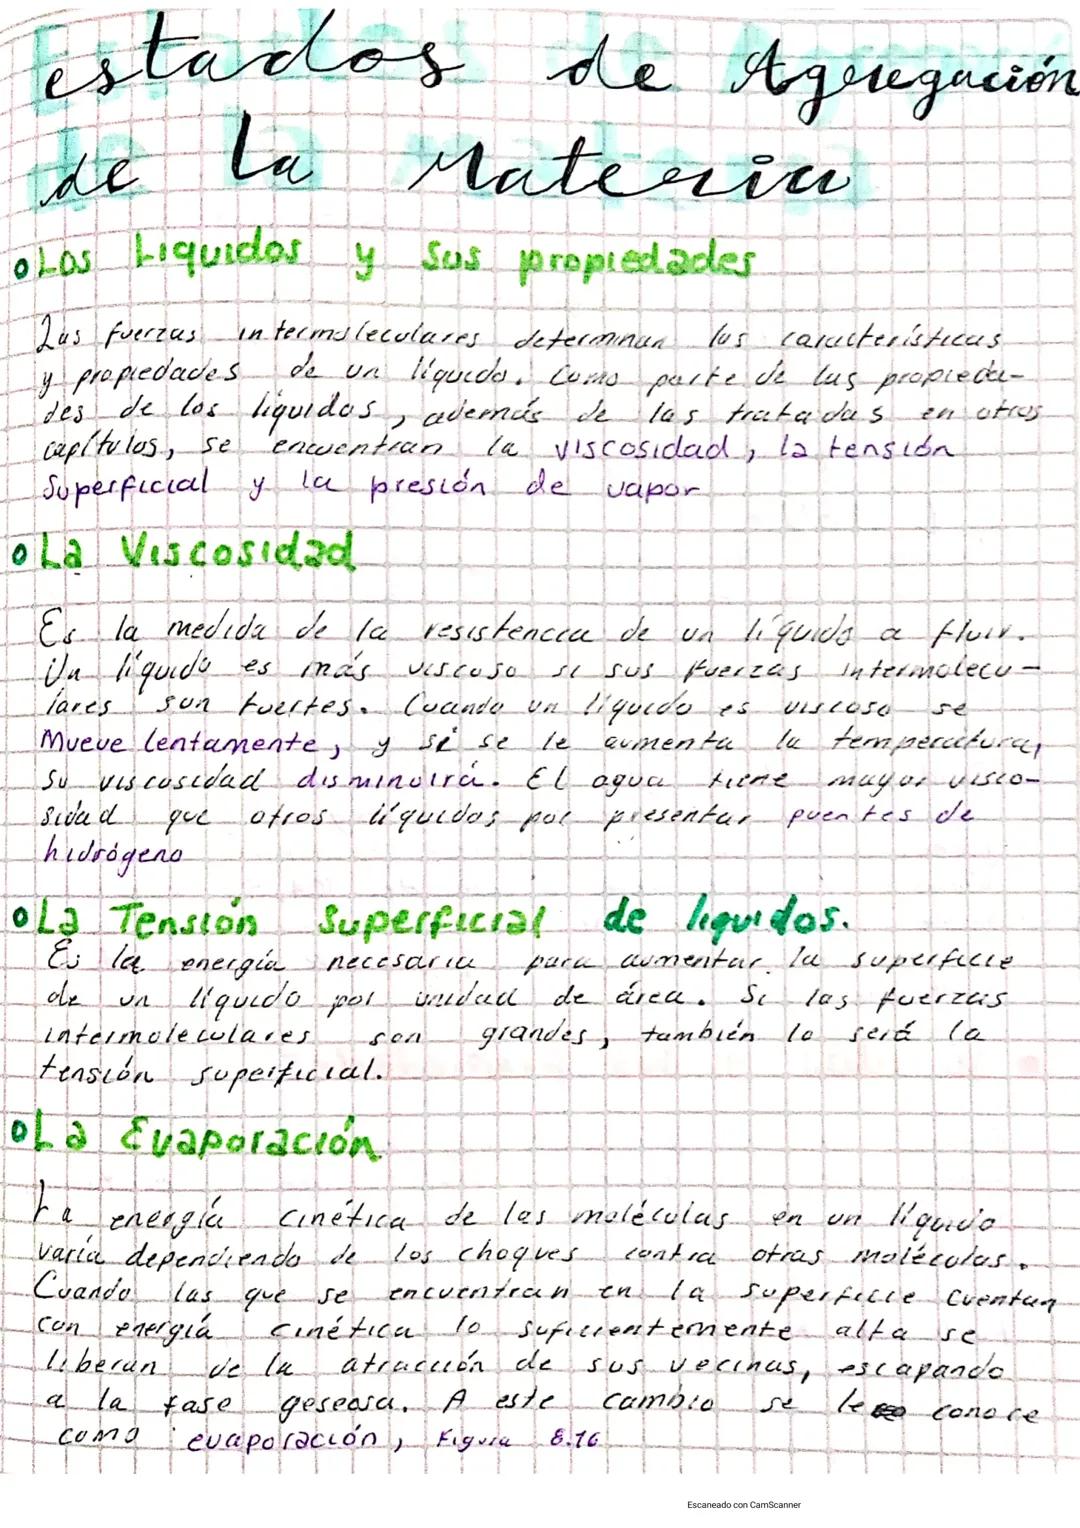 estados de Agregación
de La Materia
Los Liquidos y Sus propiedades
Las fuerzas intermoleculares determinan las características
y propiedades de un líquido. Como parte de las propieda-
des de los líquidos, además de las tratadas en otros
capítulos, se encuentran la viscosidad, la tensión
Superficial y la presión de vapor
La Viscosidad
Es la medida de la resistencia de un líquido a fluir.
Un líquido es más viscoso si sus fuerzas intermolecu-
lares son fuertes. Cuando un líquido es viscoso se
Mueve lentamente, y si se le aumenta la temperatura,
su viscosidad disminuirá. El agua tiene mayor visco-
sidad que otros líquidos por presentar puentes de
hidrógeno
La Tensión Superficial de liquidos.
Es la energía necesaria para aumentar la superficie
de un líquido por unidad de área. Si las fuerzas
intermoleculares son grandes, también lo será la
tensión superficial.
La Evaporación
La energía cinética de las moléculas en un líquido
varía dependiendo de los choques contra otras moléculas.
Cuando las que se encuentran en la superficie cuentan
con energía cinética lo suficientemente alta se
liberan de la atracción de sus vecinas, escapando
a la fase geseosa. A este cambio se le conoce
como evaporación, Figura 8.16
Escaneado con CamScanner